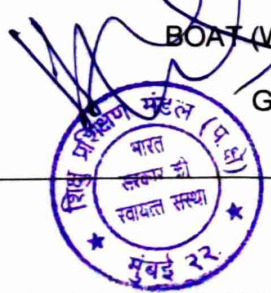 BOAT (W
G
शिक्षु प्रशिक्षण मंडल (प. क्षे)
भारत
सरकार की
स्वायत्त संस्था
★ मुंबई २२. ★